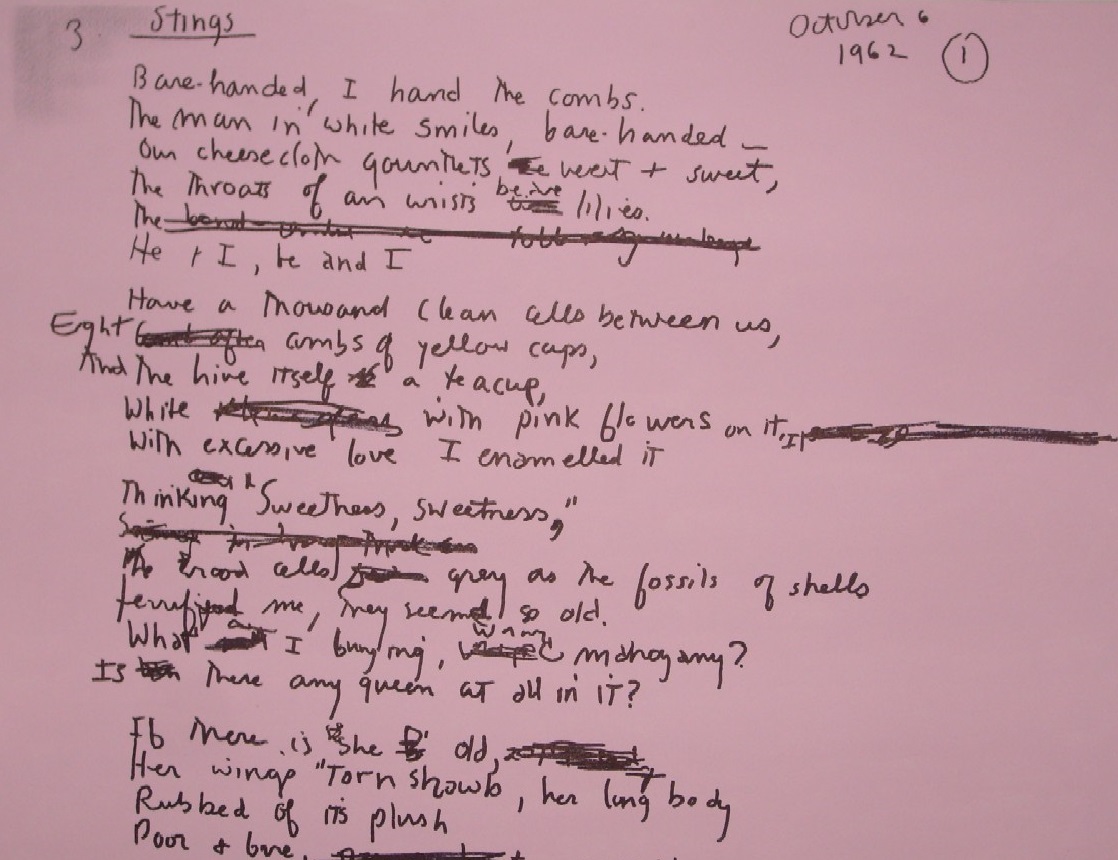 3 Stings
October 6
1962 1
Bare-handed, I hand the combs.
The man in white smiles, bare-handed —
Our cheesecloth gauntlets neat + sweet,
The throats of our wrists brave lilies.
The
He + I, he and I
Have a thousand clean cells between us,
Eight combs of yellow cups,
And The hive itself a teacup,
White with pink flowers on it,
With excessive love I enamelled it
Thinking "Sweetness, sweetness,"
The brood cells grey as the fossils of shells
terrified me, they seemed so old.
What am I buying, wormy mahogany?
Is there any queen at all in it?
If there is she is old,
Her wings torn shawls, her long body
Rubbed of its plush
Poor + bare,